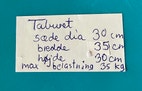 Taburet
sæde dia 30 cm
bredde 35 cm
højde 30 cm
max belastning 35 kg